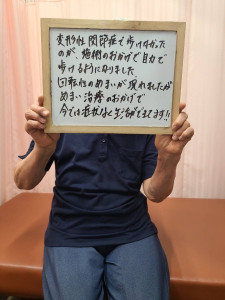 変形性関節症で歩けなかった
のが、施術のおかげで自力で
歩けるようになりました
回転性のめまいが現れましたが
めまい治療のおかげで
今では症状なく生活ができてます!!